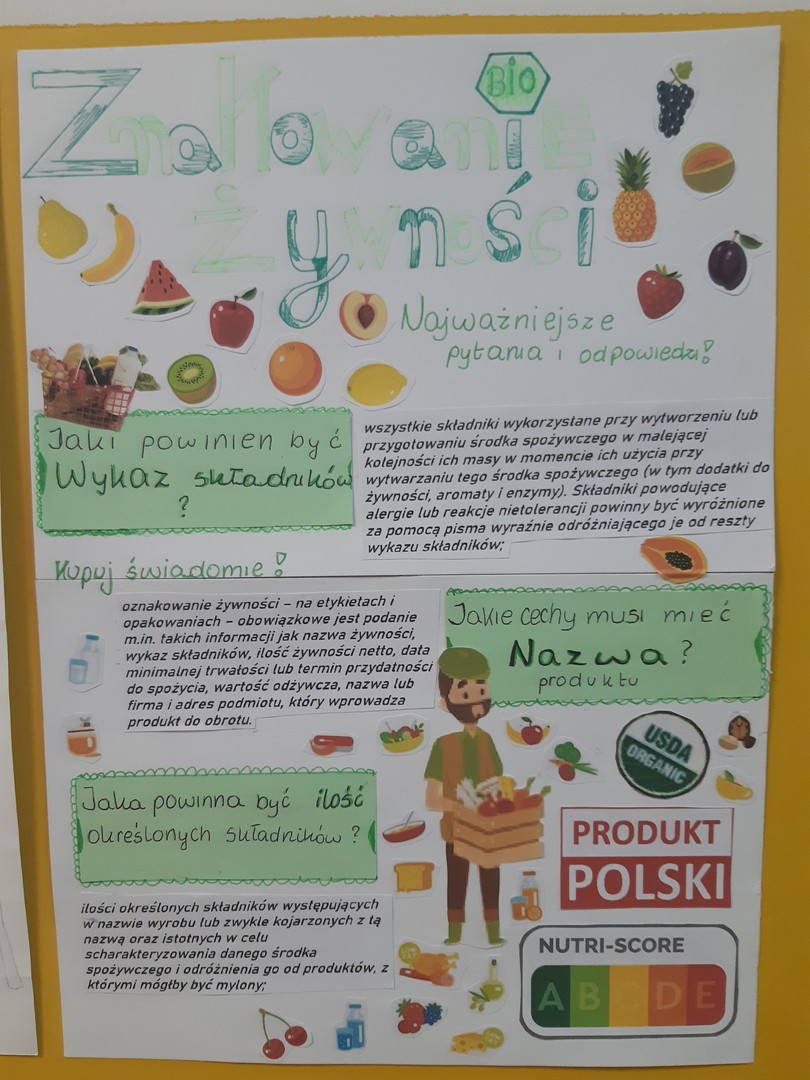 BIO
Znakowanie
żywności
Najważniejsze
pytania i odpowiedzi!
Jaki powinien być
Wykaz składników
?
wszystkie składniki wykorzystane przy wytworzeniu lub
przygotowaniu środka spożywczego w malejącej
kolejności ich masy w momencie ich użycia przy
wytwarzaniu tego środka spożywczego (w tym dodatki do
żywności, aromaty i enzymy). Składniki powodujące
alergie lub reakcje nietolerancji powinny być wyróżnione
za pomocą pisma wyraźnie odróżniającego je od reszty
wykazu składników;
Kupuj świadomie!
oznakowanie żywności – na etykietach i
opakowaniach – obowiązkowe jest podanie
m.in. takich informacji jak nazwa żywności,
wykaz składników, ilość żywności netto, data
minimalnej trwałości lub termin przydatności
do spożycia, wartość odżywcza, nazwa lub
firma i adres podmiotu, który wprowadza
produkt do obrotu.
Jakie cechy musi mieć
Nazwa?
produktu
USDA
ORGANIC
Jaka powinna być ilość
określonych składników?
PRODUKT
POLSKI
ilości określonych składników występujących
w nazwie wyrobu lub zwykle kojarzonych z tą
nazwą oraz istotnych w celu
scharakteryzowania danego środka
spożywczego i odróżnienia go od produktów, z
którymi mógłby być mylony;
NUTRI-SCORE
A B C D E